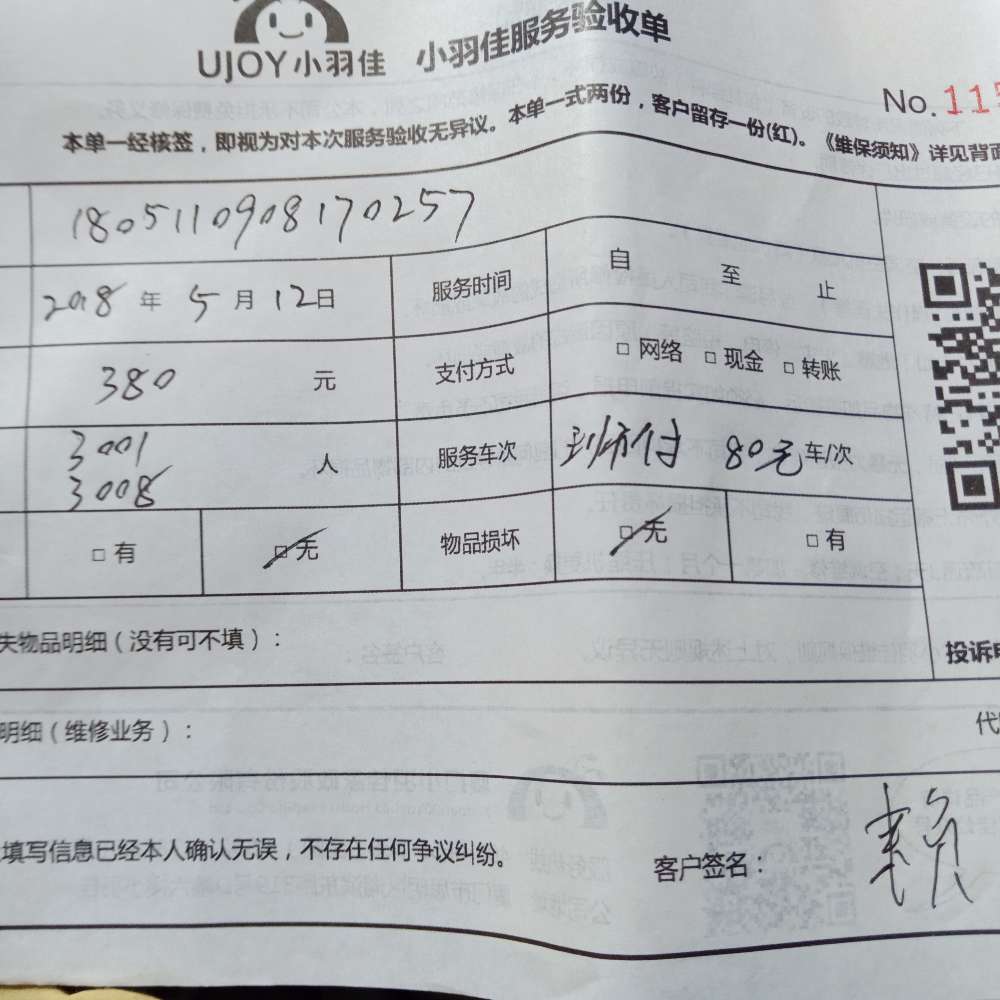 UJOY小羽佳 小羽佳服务验收单
No. 115
本单一经核签，即视为对本次服务验收无异议。本单一式两份，客户留存一份(红)。《维保须知》详见背面
1805110908170257
2018 年 5 月 12日 服务时间 自 至 止
380 元 支付方式 □ 网络 □ 现金 □ 转账
3001
3008 人 服务车次 到坊付 80元 车/次
□ 有 □ 无 物品损坏 □ 无 □ 有
失物品明细（没有可不填）：
投诉电
明细（维修业务）：
代
填写信息已经本人确认无误，不存在任何争议纠纷。
客户签名： 赖